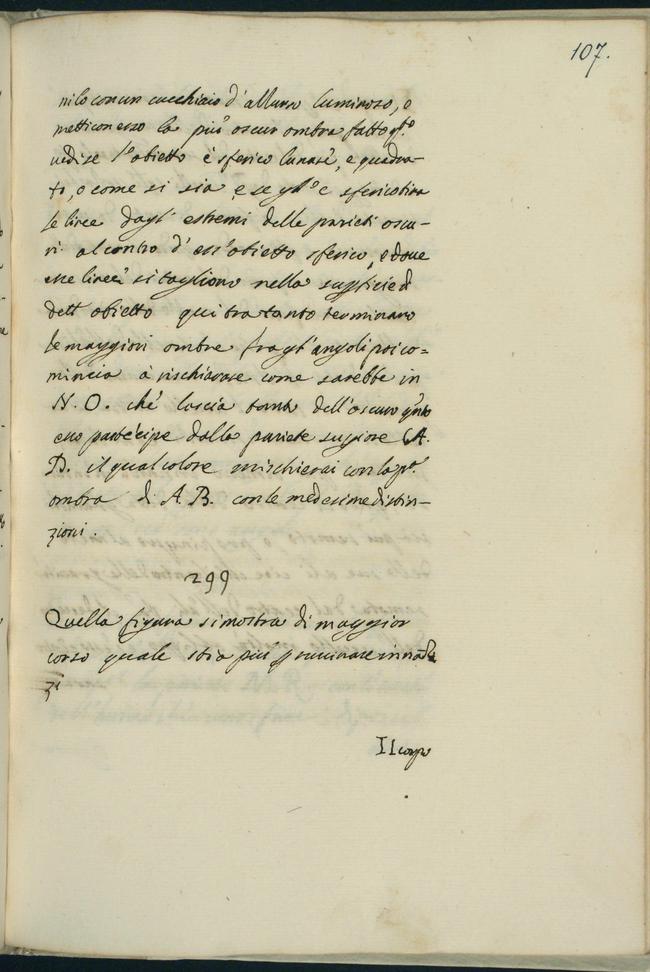 107.
nilo con un cucchiaio d'allume luminoso, o
metti con esso la più oscur ombra fatto q.to
vedi se l'obietto è sferico lunare, e quadra-
to, o come si sia, e se gl'è sferico tira
le linee dagl' estremi delle parieti oscu-
ri al contro d' ess' obietto sferico, e dove
esse linee si tagliono nella sup.ficie di
dett' obietto qui tra tanto terminano
le maggiori ombre fra gl' angoli poi co=
mincia a rischiarare come sarebbe in
N. O. che lascia tanto dell'oscuro q.nto
esso partecipe dalla pariete sup.iore A.
D. il qual colore mischierai con la p.a
ombra di A. B. con le medesime distin-
zioni.
299
Quella figura si mostra di maggior
corso quale stia più p ruuinare innãn
zi
Il corpo